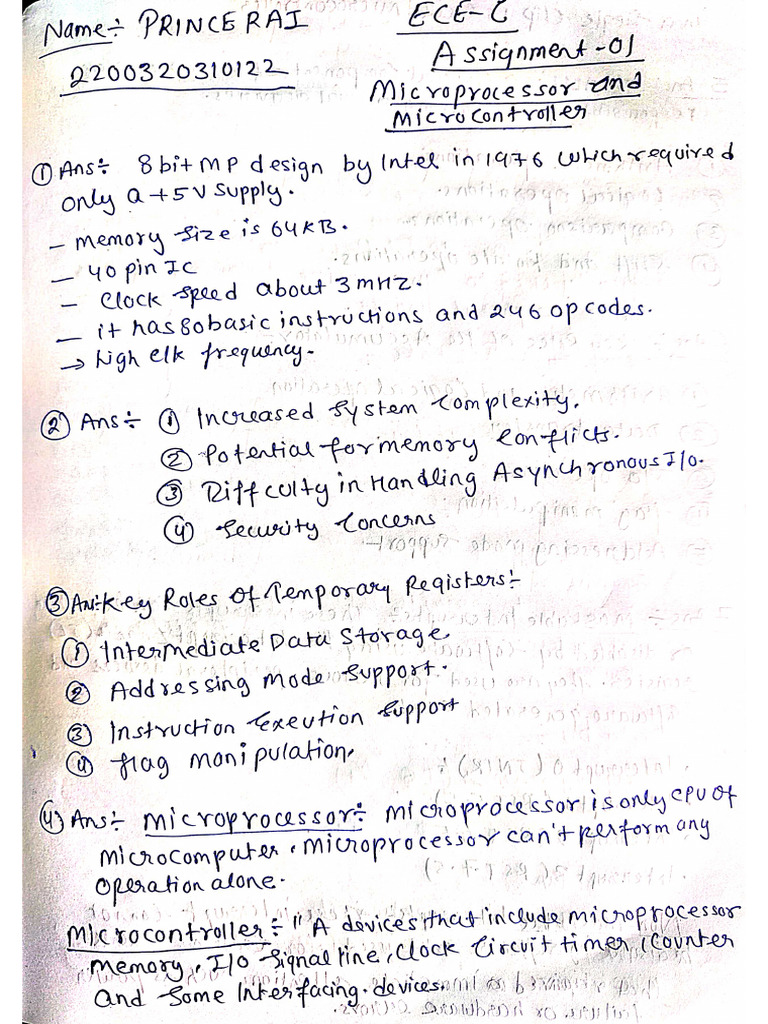 Name:- PRINCE RAI
ECE-C
2200320310122
Assignment-01
Microprocessor and
Microcontroller
① Ans:- 8 bit MP design by Intel in 1976 which required
only a +5V supply.
- memory size is 64KB.
- 40 pin IC
- Clock speed about 3 MHZ.
- it has 80 basic instructions and 246 opcodes.
→ high clk frequency.
② Ans:- ① Increased System Complexity.
② Potential for memory conflicts.
③ Diffculty in Handling Asynchronous I/o.
④ Security Concerns
③ Ans:- Key Roles of Temporary Registers:-
① Intermediate Data Storage
② Addressing mode support.
③ Instruction Exeution support
④ flag manipulation,
④ Ans:- microprocessor:- microprocessor is only CPU of
microcomputer, microprocessor can't perform any
operation alone.
Microcontroller:- "A devices that include microprocessor
memory, I/o signal line, clock circuit timer, counter
and some Interfacing devices.